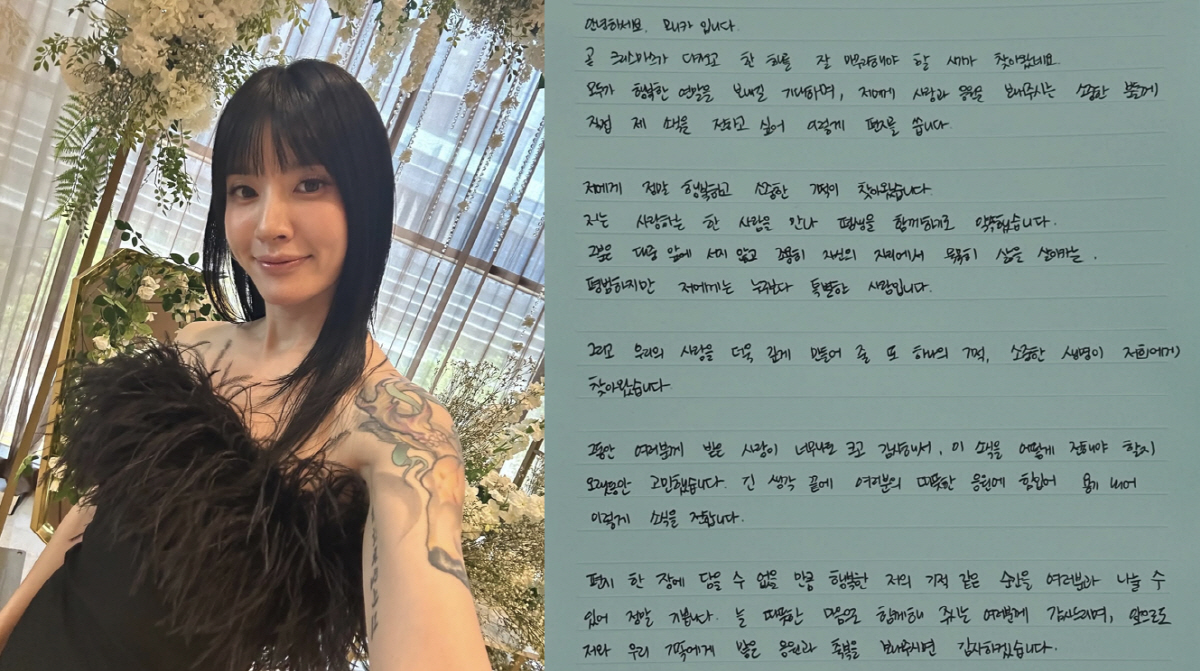 안녕하세요. 모니카 입니다.
곧 크리스마스가 다가오고 한 해를 잘 마무리해야 할 시기가 찾아왔네요.
모두가 행복한 연말을 보내길 기대하며, 저에게 사랑과 응원을 보내주시는 소중한 분들께
직접 제 소식을 전하고 싶어 이렇게 편지를 씁니다.
저에게 정말 행복하고 소중한 기적이 찾아왔습니다.
저는 사랑하는 한 사람을 만나 평생을 함께하기로 약속했습니다.
그분은 대중 앞에 서지 않고 조용히 자신의 자리에서 묵묵히 삶을 살아가는,
평범하지만 저에게는 누구보다 특별한 사람입니다.
그리고 우리의 사랑을 더욱 깊게 만들어 줄 또 하나의 기적, 소중한 생명이 저희에게
찾아왔습니다
그동안 여러분께 받은 사랑이 너무나도 크고 감사해서, 이 소식을 어떻게 전해야 할지
오랫동안 고민했습니다. 긴 생각 끝에 여러분의 따뜻한 응원에 힘입어 용기 내어
이렇게 소식을 전합니다.
편지 한 장에 담을 수 없을 만큼 행복한 저의 기적 같은 순간을 여러분과 나눌 수
있어 정말 기쁩니다. 늘 따뜻한 마음으로 함께해 주시는 여러분께 감사드리며, 앞으로도
저와 우리 가족에게 많은 응원과 축복을 보내주시면 감사하겠습니다.